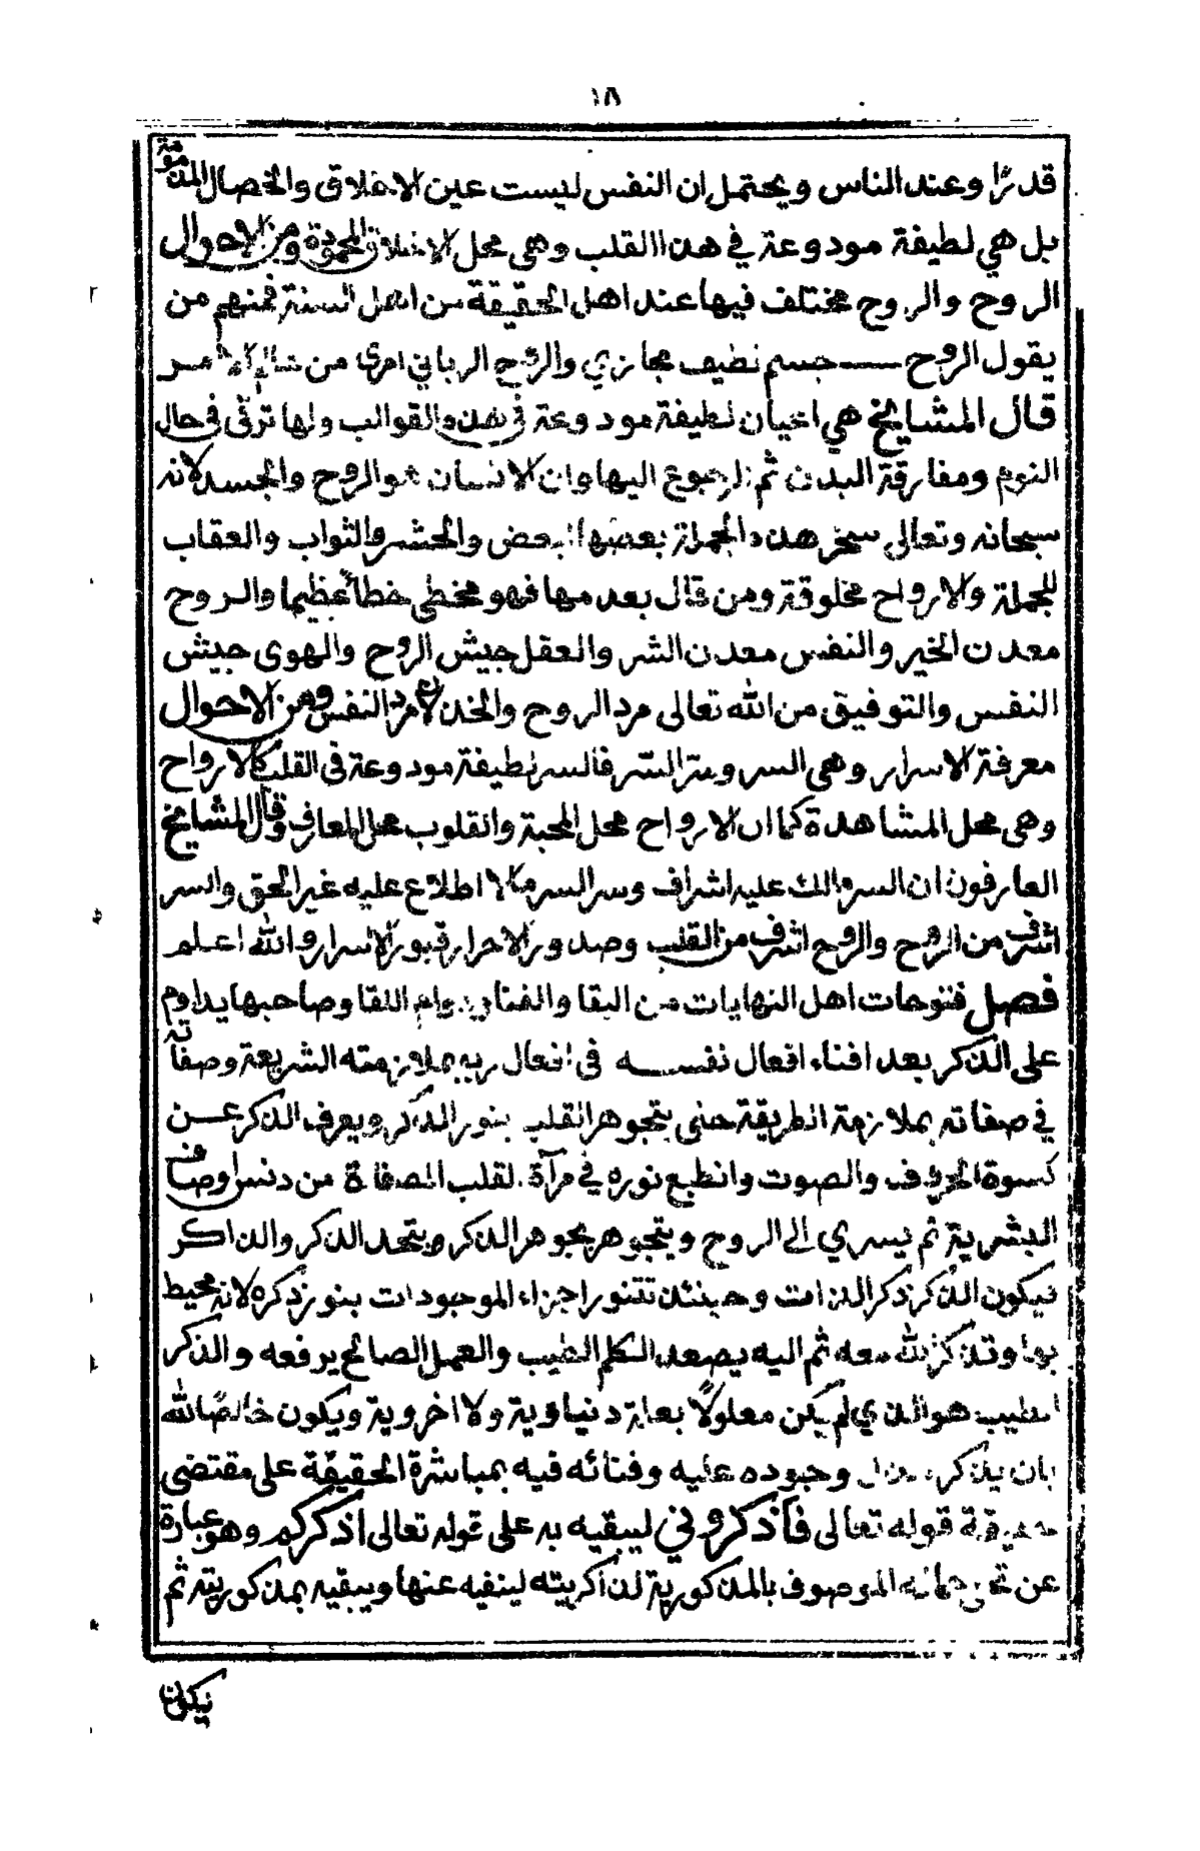 ١٨
قدرًا وعند الناس ويحتمل ان النفس ليست عين الاخلاق والخصال المذمومة
بل هي لطيفة مودوعة في هذا القلب وهي محل الاخلاق المحمودة ومن الاحوال
الروح والروح مختلف فيها عند اهل الحقيقة من اهل السنة فمنهم من
يقول الروح جسم لطيف مجازي والروح الرباني امري من عالم الامر
قال المشايخ هي اعيان لطيفة مودوعة في هذه القوالب ولها ترقى في حال
النوم ومفارقة البدن ثم الرجوع اليها وان الانسان هو الروح والجسد لانه
سبحانه وتعالى سخر هذه الجملة بعضها البعض والحشر والثواب والعقاب
للجملة والارواح مخلوقة ومن قال بعدمها فهو مخطي خطأ عظيما والروح
معدن الخير والنفس معدن الشر والعقل جيش الروح والهوى جيش
النفس والتوفيق من الله تعالى مرد الروح والخذلان مرد النفس ومن الاحوال
معرفة الاسرار وهي السر وسر السّر فالسر لطيفة مودوعة في القلب كالارواح
وهي محل المشاهدة كما ان الارواح محل المحبة والقلوب محل المعارف وقال المشايخ
العارفون ان السر مالك عليه اشراف وسر السر مالا اطلاع عليه غير الحق والسر
اشرف من الروح والروح اشرف من القلب وصدور الاحرار قبور الاسرار والله اعلم
فصل فتوحات اهل النهايات من البقا والفنا دوام اللقا وصاحبها يداوم
على الذكر بعد افناء افعال نفسه في افعال ربه بملازمته الشريعة وصفاته
في صفاته بملازمة الطريقة حتى يتجوهر القلب بنور الذكر ويعرف الذكر عن
كسوة الحروف والصوت وانطبع نوره في مرآة القلب المصفاة من دنس اوصاف
البشرية ثم يسري الى الروح ويتجوهر بجوهر الذكر ويتحد الذكر والذاكر
فيكون الذكر ذكر الذات وحينئذ تتنور اجزاء الموجودات بنور ذكره لانه محيط
بها وتذكر لله معه ثم اليه يصعد الكلم الطيب والعمل الصالح يرفعه والذكر
الطيب هو الذي لم يكن معلولًا بعلة دنياوية ولا اخروية ويكون خالصًا لله
بان يذكره وجوده عليه وفنائه فيه بمباشرة الحقيقة على مقتضى
حقيقة قوله تعالى فاذكروني ليبقيه به على قوله تعالى اذكركم وهو عبارة
عن تجلي جماله الموصوف بالمذكورية لذاكريته لينفيه عنها ويبقيه بمذكوريته ثم